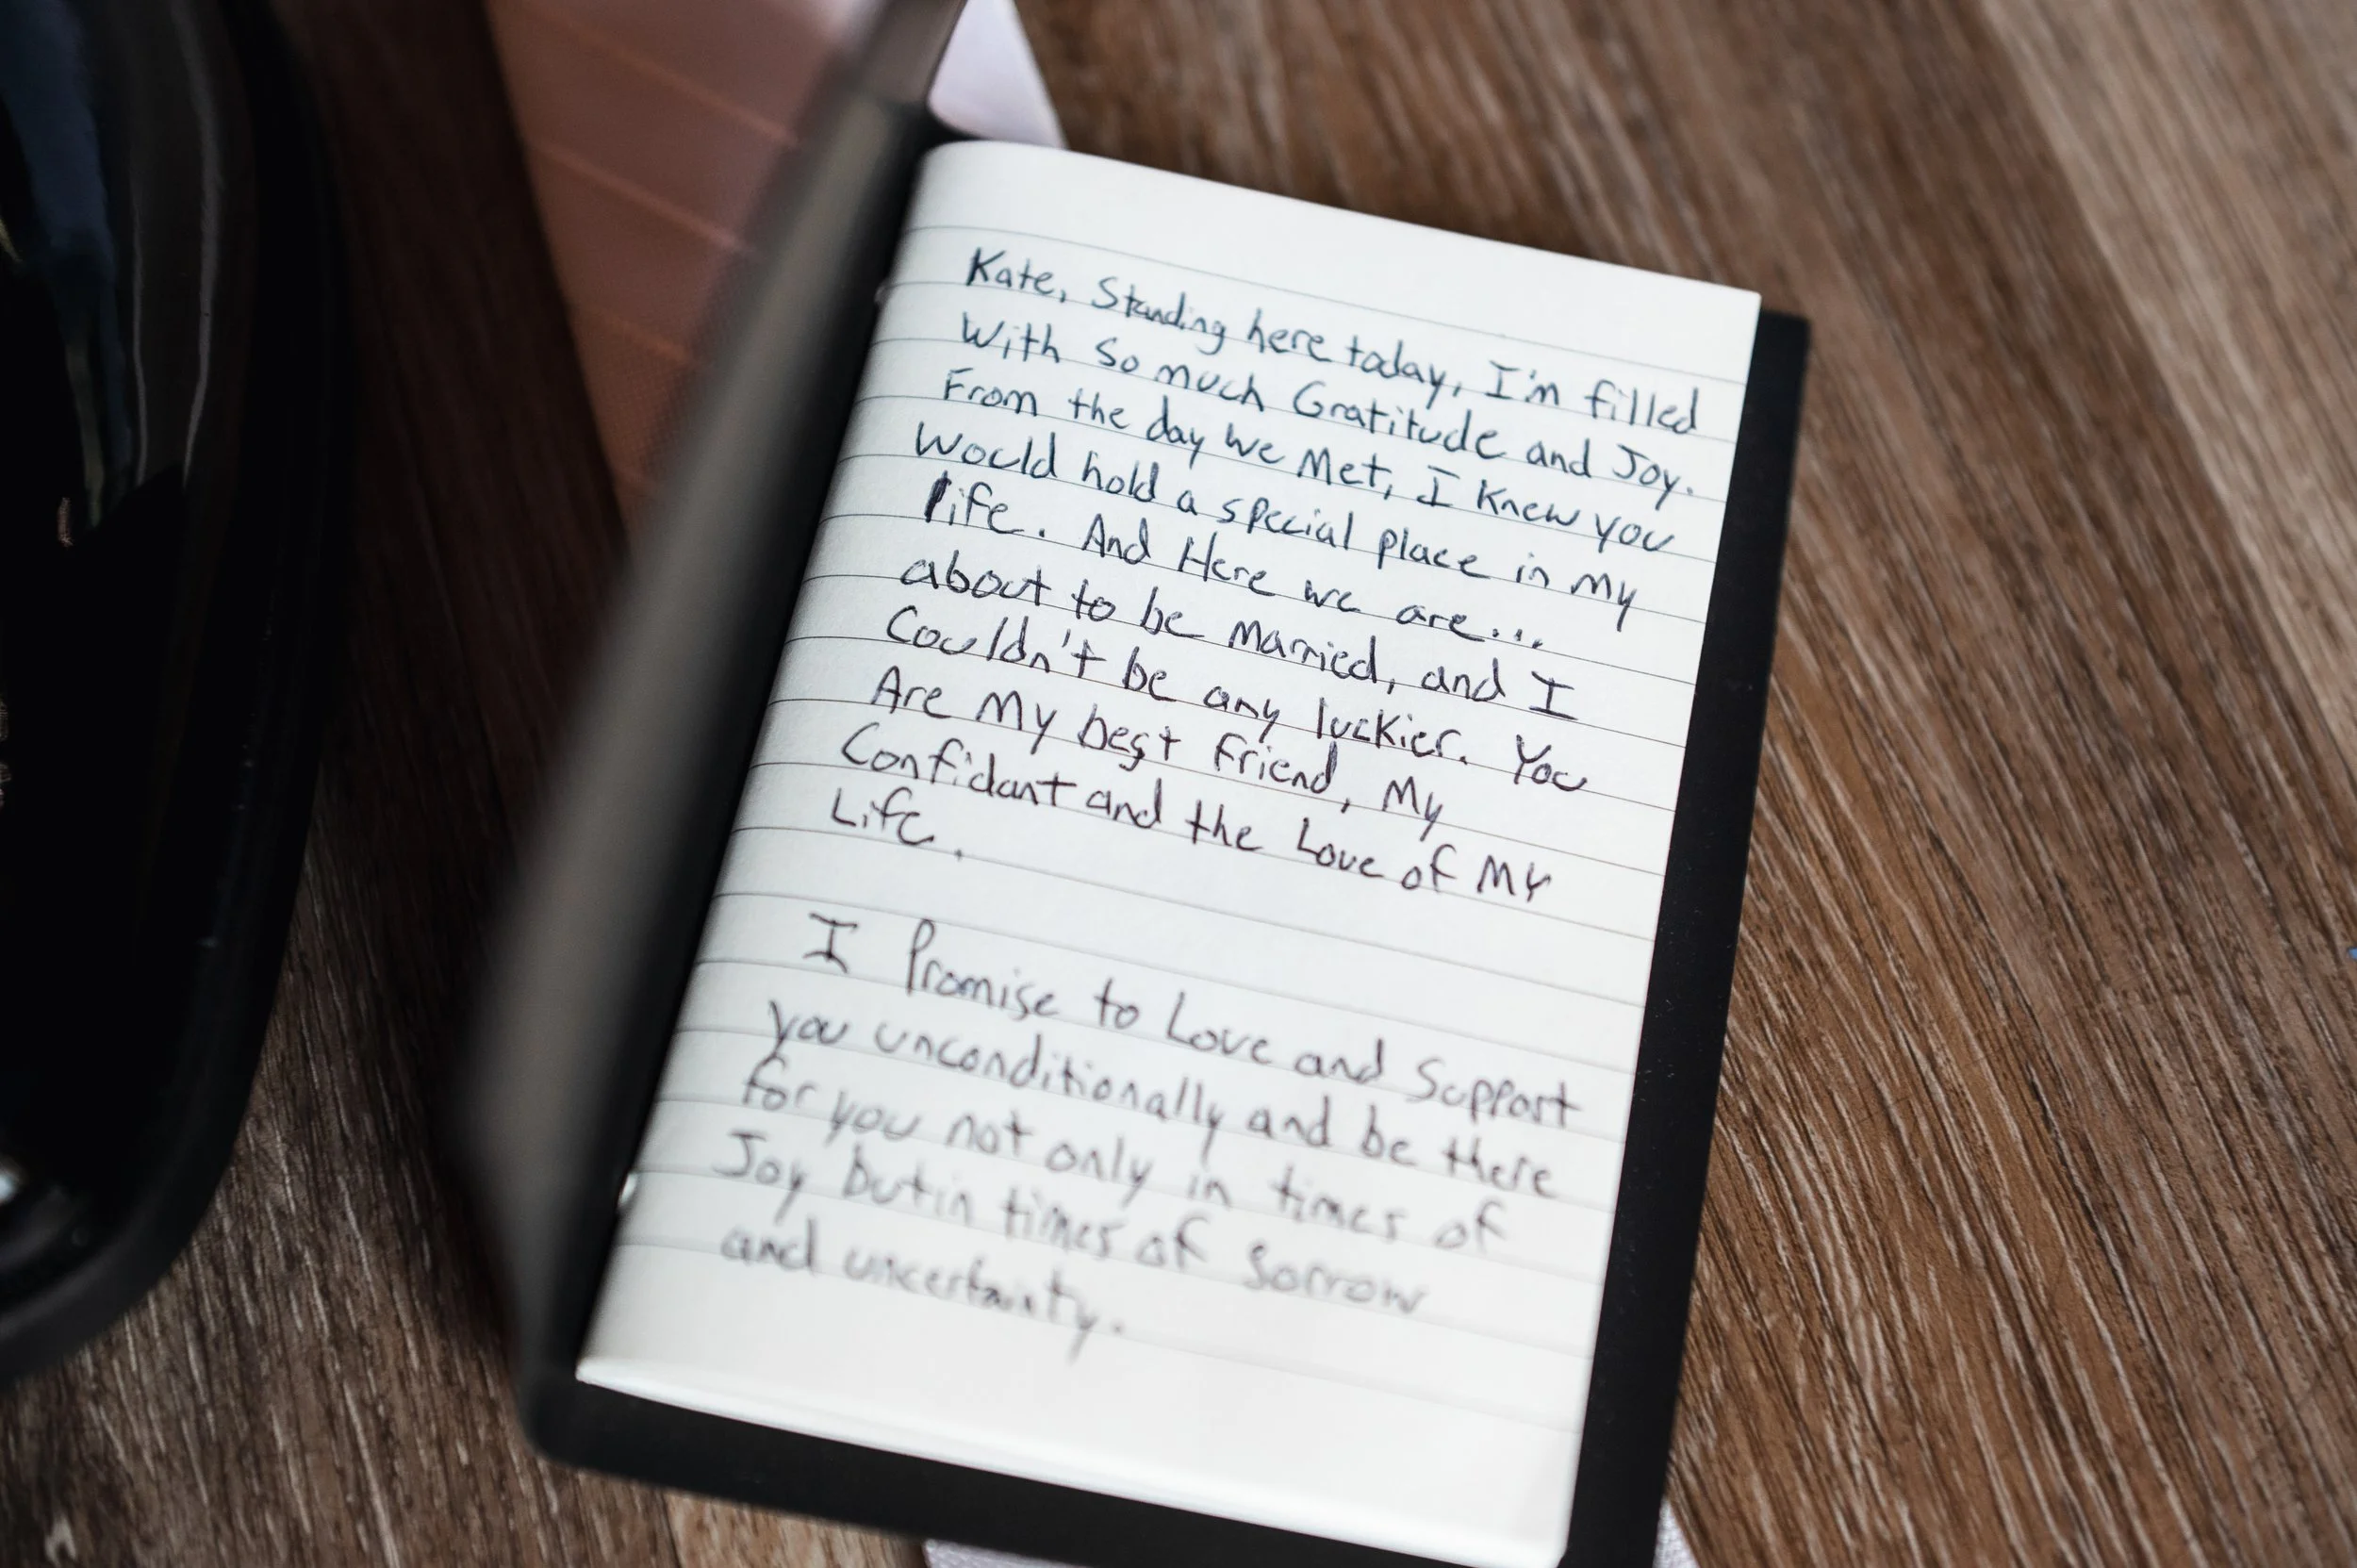 Kate, Standing here today, I'm filled
With so much Gratitude and Joy.
From the day we Met, I Knew you
Would hold a special place in my
life. And Here we are...
about to be Married, and I
Couldn't be any luckier. You
Are My best friend, My
Confidant and the Love of MY
Life.
I Promise to Love and Support
you unconditionally and be there
for you not only in times of
Joy but in times of Sorrow
and uncertainty.